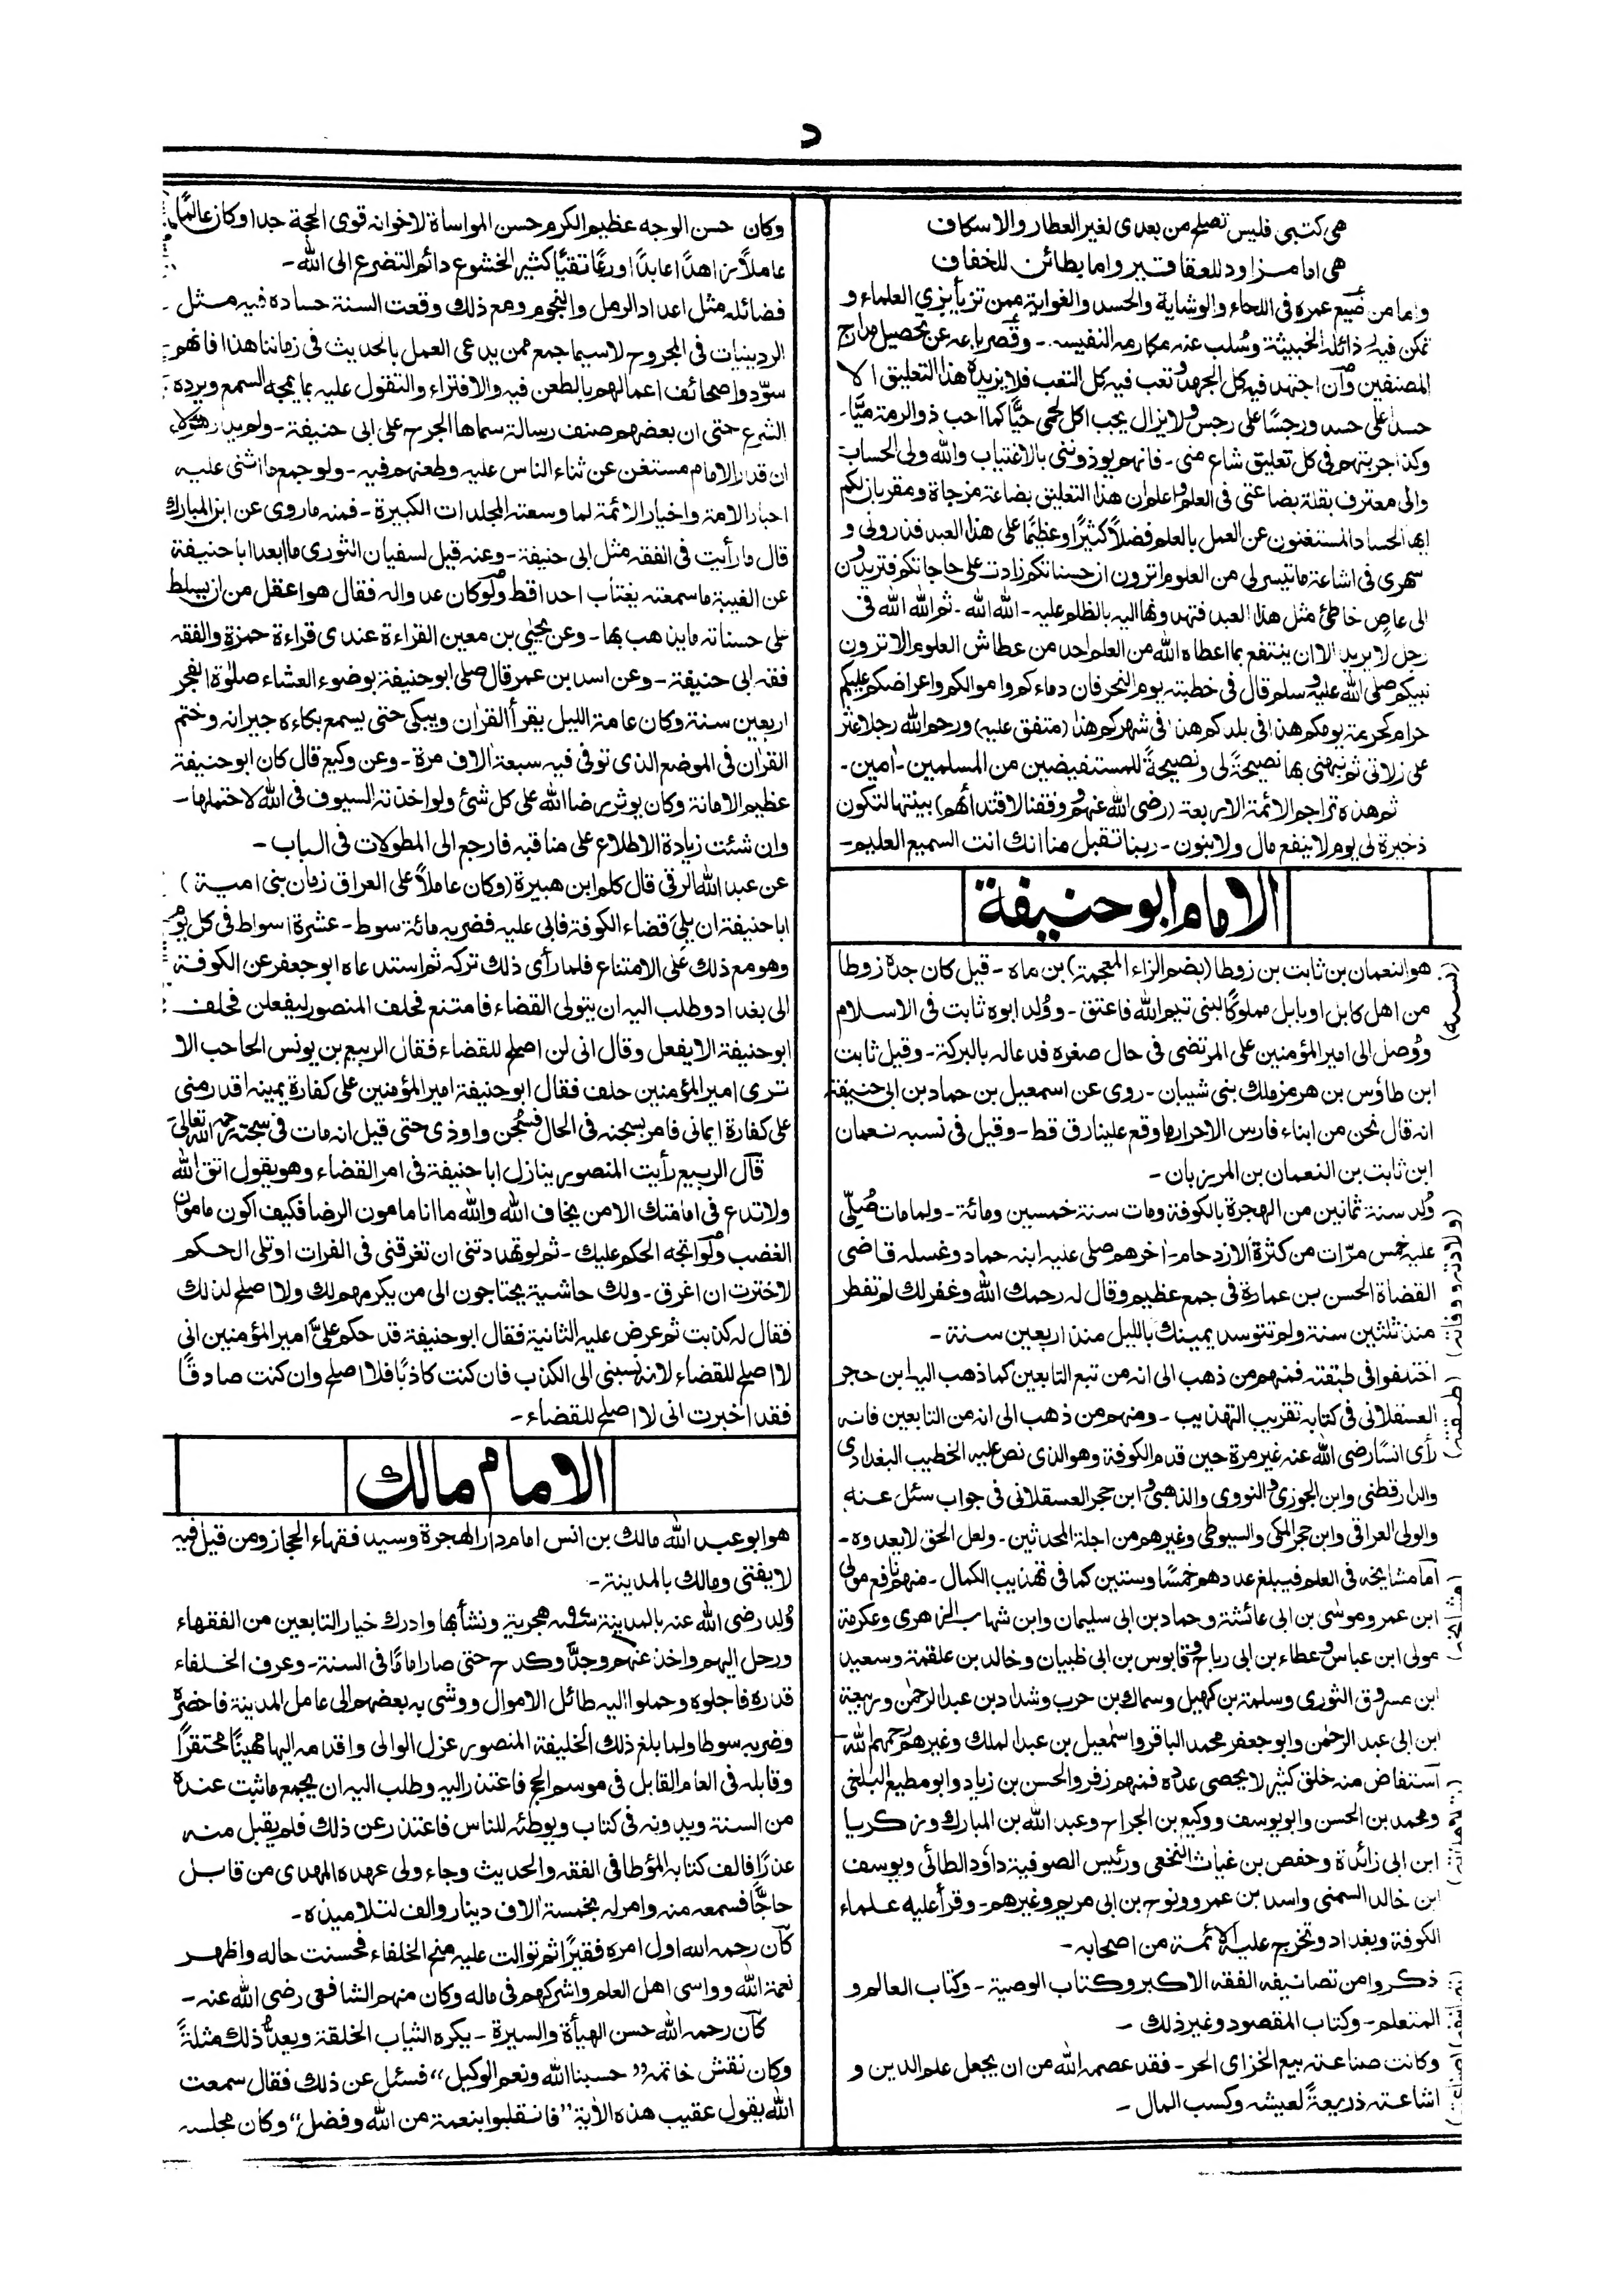 د
هى كتبى فليس تصلح من بعدى لغير العطار والاسكاف
هى اما مزاود للعقاقير واما بطائن للخفاف
واما من ضيع عمره فى اللحاء والوشاية والحسد والغواية ممن تزيأ بزى العلماء و
تمكن فيه رذائله الخبيثة وسُلب عنه مكارمه النفيسه - وقصر باعه عن تحصيل مدارج
المصنفين وان اجتهد فيه كل الجهد وتعب فيه كل التعب فلا يزيده هذا التعليق الا
حسدًا على حسد ورجسًا على رجس ولا يزال يحب اكل لحمى حيًّا كما احب ذو الرمة ميًّا -
وكذا جربتهم فى كل تعليق شاع منى - فانهم يوذوننى بالاغتياب والله ولى الحساب
وانى معترف بقلة بضاعتى فى العلم واعلم ان هذا التعليق بضاعة مزجاة ومقر بان لكم
ايها الحساد المستغنون عن العمل بالعلم فضلاً كثيرًا وعظيمًا على هذا العبد فذرونى و
سهرى فى اشاعة ما تيسر لى من العلوم اترون ان حسناتكم زادت على حاجاتكم فتريدون
الى عاصٍ خاطئ مثل هذا العبد فتهدونها اليه بالظلم عليه - الله الله - ثم الله الله فى
رجل لا يريد الا ان ينتفع بما اعطاه الله من العلم احد من عطاش العلوم الا ترون
نبيكم صلى الله عليه وسلم قال فى خطبته يوم النحر فان دماءكم واموالكم واعراضكم عليكم
حرام كحرمة يومكم هذا فى بلدكم هذا فى شهركم هذا (متفق عليه) ورحم الله رجلا عثر
على زلاتى ثم نبهنى بها نصيحةً لى ونصيحةً للمستفيضين من المسلمين - اٰمين -
ثم هذه تراجم الائمة الاربعة (رضى الله عنهم ووفقنا لاقتدائهم) بينتها لتكون
ذخيرة لى يوم لا ينفع مال ولا بنون - ربنا تقبل منا انك انت السميع العليم -
الامام ابو حنيفة
(نسبه)
هو النعمان بن ثابت بن زوطا (بضم الزاء المعجمة) بن ماه - قيل كان جده زوطا
من اهل كابل او بابل مملوكًا لبنى تيم الله فاعتق - ووُلد ابوه ثابت فى الاسلام
ووُصل الى امير المؤمنين على المرتضى فى حال صغره فدعا له بالبركة - وقيل ثابت
ابن طاؤس بن هرمز ملك بنى شيبان - روى عن اسمعيل بن حماد بن ابى حنيفة
انه قال نحن من ابناء فارس الاحرار ما وقع علينا رق قط - وقيل فى نسبه نعمان
ابن ثابت بن النعمان بن المرزبان -
(ولادته ووفاته)
وُلد سنة ثمانين من الهجرة بالكوفة ومات سنة خمسين ومائة - ولما مات صُلّى
عليه خمس مرّات من كثرة الازدحام - اخرهم صلى عليه ابنه حماد وغسله قاضى
القضاة الحسن بن عمارة فى جمع عظيم وقال له رحمك الله وغفر لك لم تفطر
منذ ثلثين سنة ولم تتوسد يمينك بالليل منذ اربعين سنة -
(طبقته)
اختلفوا فى طبقته فمنهم من ذهب الى انه من تبع التابعين كما ذهب اليه ابن حجر
العسقلانى فى كتابه تقريب التهذيب - ومنهم من ذهب الى انه من التابعين فانه
رأى انسًا رضى الله عنه غير مرة حين قدم الكوفة وهو الذى نص عليه الخطيب البغدادى
والدارقطنى وابن الجوزى والنووى والذهبى وابن حجر العسقلانى فى جواب سئل عنه
والولى العراقى وابن حجر المكى والسيوطى وغيرهم من اجلة المحدثين - ولعل الحق لا يعدوه -
(مشائخه)
اما مشايخه فى العلم فيبلغ عددهم خمسًا وستين كما فى تهذيب الكمال - منهم نافع مولى
ابن عمر وموسٰى بن ابى عائشة وحماد بن ابى سليمان وابن شهاب الزهرى وعكرمة
مولى ابن عباس وعطاء بن ابى رباح وقابوس بن ابى ظبيان وخالد بن علقمة وسعيد
ابن مسروق الثورى وسلمة بن كهيل وسماك بن حرب وشداد بن عبد الرحمٰن وربيعة
ابن ابى عبد الرحمٰن وابو جعفر محمد الباقر واسمٰعيل بن عبد الملك وغيرهم رحمهم الله -
(تلامذته)
استفاض منه خلق كثير لا يحصى عدده فمنهم زفر والحسن بن زياد وابو مطيع البلخى
ومحمد بن الحسن وابو يوسف ووكيع بن الجراح وعبد الله بن المبارك وزكريا
ابن ابى زائدة وحفص بن غياث النخعى ورئيس الصوفية داؤد الطائى ويوسف
ابن خالد السمنى واسد بن عمرو ونوح بن ابى مريم وغيرهم - وقرأ عليه علماء
الكوفة وبغداد وتخرج عليه الأئمة من اصحابه -
ذكروا من تصانيفه الفقه الاكبر وكتاب الوصية - وكتاب العالم و
المتعلم - وكتاب المقصود وغير ذلك -
وكانت صناعته بيع الخز اى الحر - فقد عصمه الله من ان يجعل علم الدين و
اشاعته ذريعةً لعيشه وكسب المال -
وكان حسن الوجه عظيم الكرم حسن المواساة لاخوانه قوى الحجة جدا وكان عالمًا
عاملاً زاهدًا عابدًا ورعًا تقيًّا كثير الخشوع دائم التضرع الى الله -
فضائله مثل اعداد الرمل والنجوم ومع ذلك وقعت السنة حساده فيه مثل
الردينيات فى المجروح لا سيما جمع ممن يدعى العمل بالحديث فى زماننا هذا فانهم
سوّدوا صحائف اعمالهم بالطعن فيه والافتراء والتقول عليه بما يمجه السمع ويرده
الشرع حتى ان بعضهم صنف رسالة سماها الجرح على ابى حنيفة - ولم يدر هؤلاء
ان قدر الامام مستغن عن ثناء الناس عليه وطعنهم فيه - ولو جمع ما اثنى عليه
احبار الامة واخبار الائمة لما وسعته المجلدات الكبيرة - فمنه ما روى عن ابن المبارك
قال ما رأيت فى الفقه مثل ابى حنيفة - وعنه قيل لسفيان الثورى ما ابعد ابا حنيفة
عن الغيبة ما سمعته يغتاب احدا قط ولو كان عدوا له فقال هو اعقل من ان يسلط
على حسناته ما يذهب بها - وعن يحيٰى بن معين القراءة عندى قراءة حمزة والفقه
فقه ابى حنيفة - وعن اسد بن عمر قال صلى ابو حنيفة بوضوء العشاء صلٰوة الفجر
اربعين سنة وكان عامة الليل يقرأ القرآن ويبكى حتى يسمع بكاءه جيرانه وختم
القراٰن فى الموضع الذى توفى فيه سبعة اٰلاف مرة - وعن وكيع قال كان ابو حنيفة
عظيم الامانة وكان يوثر رضا الله على كل شئ ولو اخذته السيوف فى الله لاحتملها -
وان شئت زيادة الاطلاع على مناقبه فارجع الى المطولات فى الباب -
عن عبد الله الرقى قال كلم ابن هبيرة (وكان عاملاً على العراق زمان بنى امية)
ابا حنيفة ان يلى قضاء الكوفة فابى عليه فضربه مائة سوط - عشرة اسواط فى كل يوم
وهو مع ذلك على الامتناع فلما رأى ذلك تركه ثم استدعاه ابو جعفر عن الكوفة
الى بغداد وطلب اليه ان يتولى القضاء فامتنع فحلف المنصور ليفعلن فحلف
ابو حنيفة الا يفعل وقال انى لن اصلح للقضاء فقال الربيع بن يونس الحاجب الا
ترى امير المؤمنين حلف فقال ابو حنيفة امير المؤمنين على كفارة يمينه اقدر منى
على كفارة ايمانى فامر بسجنه فى الحال فسُجن واوذى حتى قيل انه مات فى سجنه رحمه الله تعالى
قال الربيع رأيت المنصور ينازل ابا حنيفة فى امر القضاء وهو يقول اتق الله
ولا تدع فى امانتك الا من يخاف الله والله ما انا مامون الرضا فكيف اكون مامون
الغضب ولو اتجه الحكم عليك - ثم لو تهددتنى ان تغرقنى فى الفرات او تلى الحكم
لاخترت ان اغرق - ولك حاشية يحتاجون الى من يكرمهم لك ولا اصلح لذلك
فقال له كذبت ثم عرض عليه الثانية فقال ابو حنيفة قد حكم علىَّ امير المؤمنين انى
لا اصلح للقضاء لانه نسبنى الى الكذب فان كنت كاذبًا فلا اصلح وان كنت صادقًا
فقد اخبرت انى لا اصلح للقضاء -
الامام مالك
هو ابو عبد الله مالك بن انس امام دار الهجرة وسيد فقهاء الحجاز ومن قيل فيه
لا يفتى ومالك بالمدينة -
وُلد رضى الله عنه بالمدينة هجرية ونشأ بها وادرك خيار التابعين من الفقهاء
ورحل اليهم واخذ عنهم وجدَّ وكدح حتى صار امامًا فى السنة - وعرف الخلفاء
قدره فاجلوه وحملوا اليه طائل الاموال ووشى به بعضهم الى عامل المدينة فاحضره
وضربه سوطا ولما بلغ ذلك الخليفة المنصور عزل الوالى واقدمه اليها مهينًا محتقرًا
وقابله فى العام القابل فى موسم الحج فاعتذر اليه وطلب اليه ان يجمع ما ثبت عنده
من السنة ويدونه فى كتاب ويوطئه للناس فاعتذر عن ذلك فلم يقبل منه
عذرًا فالف كتابه المؤطا فى الفقه والحديث وجاء ولى عهده المهدى من قابل
حاجًّا فسمعه منه وامر له بخمسة اٰلاف دينار والف لتلاميذه -
كان رحمه الله اول امره فقيرًا ثم توالت عليه منح الخلفاء فحسنت حاله واظهر
نعمة الله وواسى اهل العلم واشركهم فى ماله وكان منهم الشافعى رضى الله عنه -
كان رحمه الله حسن الهيأة والسيرة - يكره الثياب الخلقة ويعدُّ ذلك مثلةً
وكان نقش خاتمه "حسبنا الله ونعم الوكيل" فسئل عن ذلك فقال سمعت
الله يقول عقيب هذه الأية "فانقلبوا بنعمة من الله وفضل" وكان مجلسه